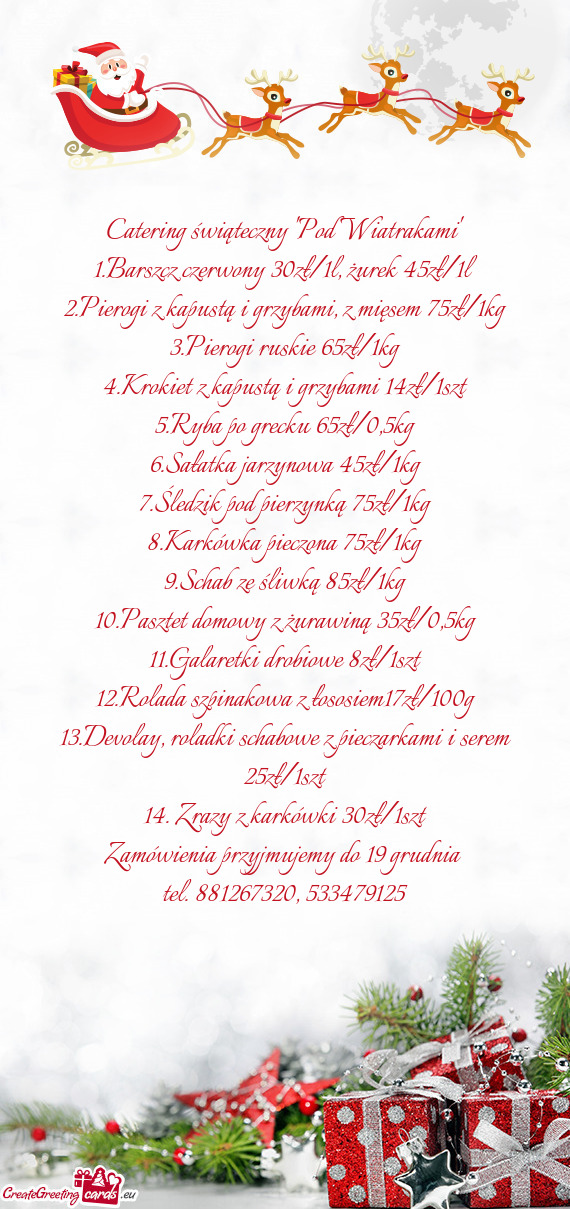 Catering świąteczny "Pod Wiatrakami"
1.Barszcz czerwony 30zł/1l, żurek 45zł/1l
2.Pierogi z kapustą i grzybami, z mięsem 75zł/1kg
3.Pierogi ruskie 65zł/1kg
4.Krokiet z kapustą i grzybami 14zł/1szt
5.Ryba po grecku 65zł/0,5kg
6.Sałatka jarzynowa 45zł/1kg
7.Śledzik pod pierzynką 75zł/1kg
8.Karkówka pieczona 75zł/1kg
9.Schab ze śliwką 85zł/1kg
10.Pasztet domowy z żurawiną 35zł/0,5kg
11.Galaretki drobiowe 8zł/1szt
12.Rolada szpinakowa z łososiem17zł/100g
13.Devolay, roladki schabowe z pieczarkami i serem
25zł/1szt
14. Zrazy z karkówki 30zł/1szt
Zamówienia przyjmujemy do 19 grudnia
tel. 881267320, 533479125
CreateGreeting cards .eu